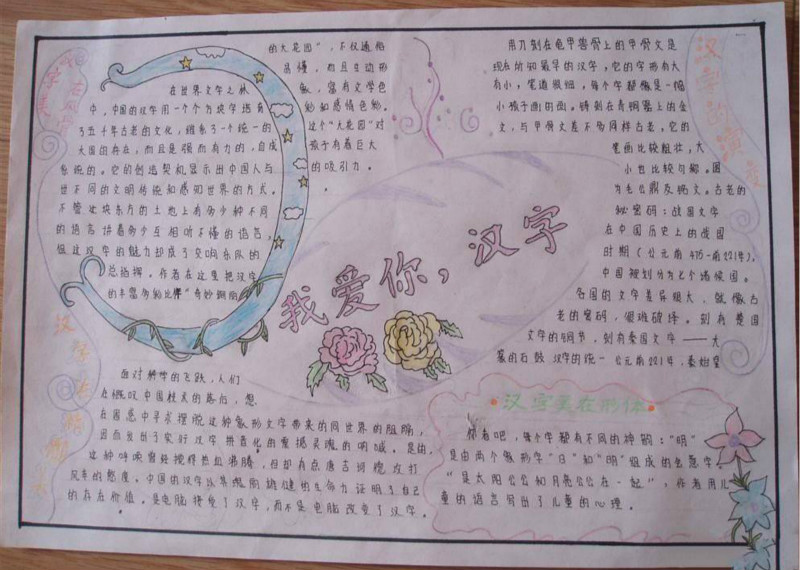 在世界文字之林
中,中国的汉字用一个个方块字培育
了五千年古老的文化,维系了一个统一的
大国的存在,而且是强而有力的,自成
系统的。它的创造契机显示出中国人与
世不同的文明传统和感知世界的方式。
不管这块东方的土地上有多少种不同
的语言讲着多少互相听不懂的语言,
但这汉字的魅力却成了交响乐队的
总指挥。作者在这里把汉字
的丰富多彩比作"奇妙
的大花园",不仅通俗
易懂,而且生动形
象,富有文学色
彩和感情色彩。
这个"大花园"对
孩子有着巨大
的吸引力。
用刀刻在龟甲兽骨上的甲骨文是
现在所知最早的汉字,它的字形有大
有小,笔道很细,每个字都像是一幅
小孩子画的画,铸刻在青铜器上的金
文,与甲骨文差不多同样古老,它的
笔画比较粗壮,大
小也比较匀称。因
为毛公鼎及铭文。古老的
秘密码:战国文字
在中国历史上的战国
时期(公元前475-前221年),
中国规划分为七个诸侯国。
各国的文字差异很大,就像古
老的密码,很难破译。别有楚国
文字的与同节,刻有秦国文字——大
篆的石鼓 汉字的统一 公元前221年,秦始皇
我爱你,汉字
面对解神的飞跃,人们
在概叹中国技夫的落伍,想
在困惑中寻求摆脱这种象形文字带来的同世界的阻隔,
因而发出了实行汉字拼音化的震撼灵魂的呐喊。是的,
这种呼唤曾经搅得热血沸腾,但却有点唐吉诃德攻打
风车的态度。中国的汉字以其雄健的生命力证明了自己
的存在价值。是电脑接受了汉字,而不是电脑改变了汉字。
汉字美在形体
你看吧,每个字都有不同的神韵:"明"
是由两个象形字"日"和"明"组成的会意字,
"是太阳公公和月亮公公在一起",作者用儿
童的语言写出了儿童的心理。